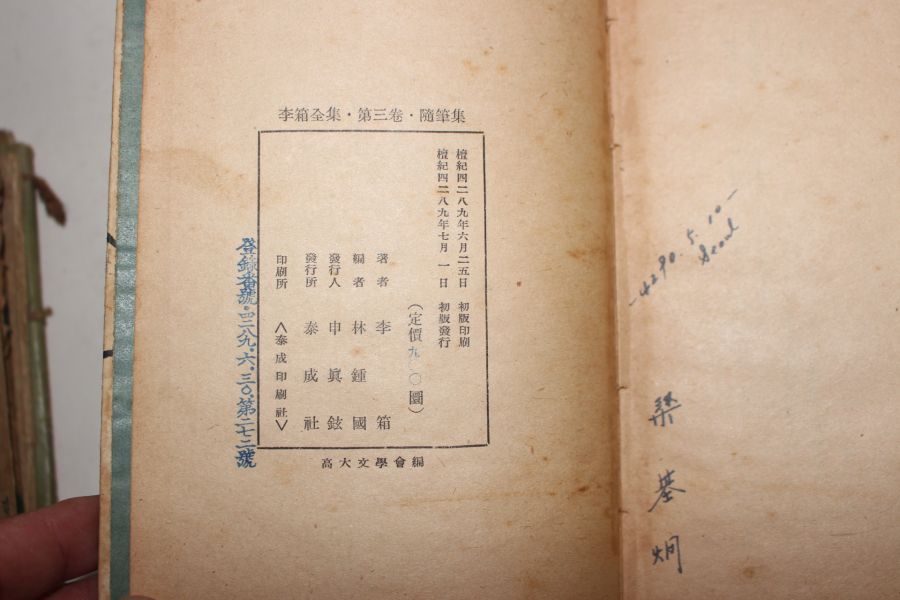 李箱全集・第三卷・隨筆集
檀紀四二八九年六月二五日 初版印刷
檀紀四二八九年七月 一 日 初版發行
(定價九〇〇圜)
著者 李箱
編者 林鍾國
發行人 申眞鉉
發行所 泰成社
印刷所 <泰成印刷社>
登錄番號・四二八九.六.三〇.第二七二號
高大文學會編
-4290. 5. 10-
Seoul
基
炯